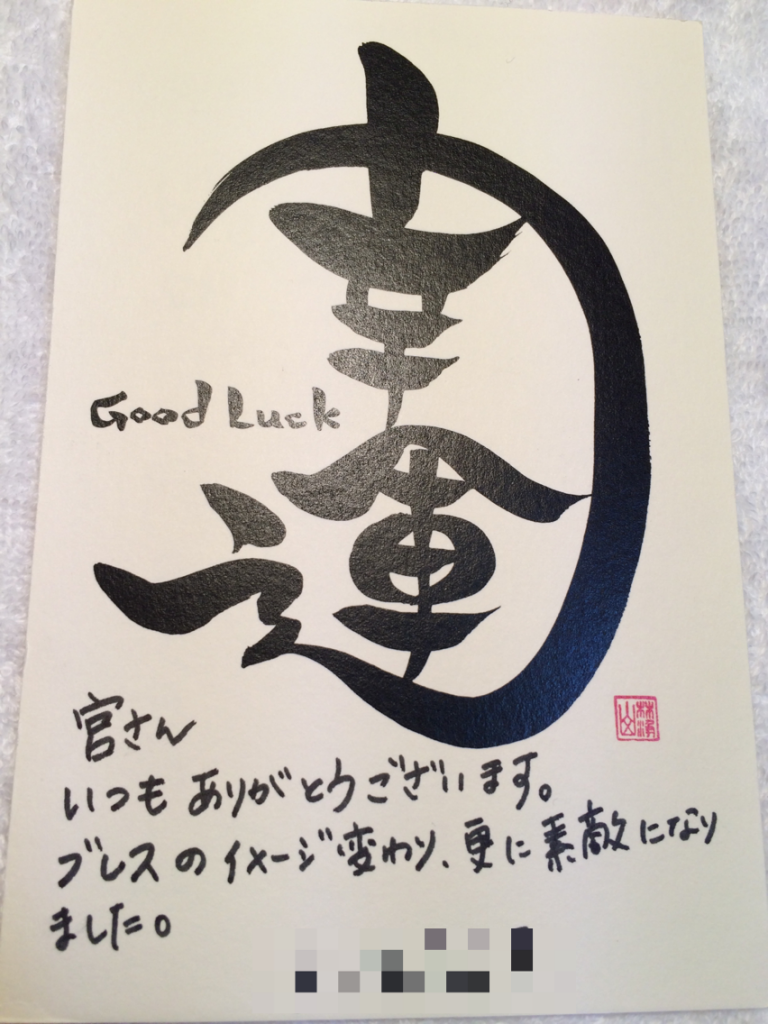 幸運
Good Luck
宮さん
いつもありがとうございます。
ブレスのイメージ変わり、更に素敵になり
ました。